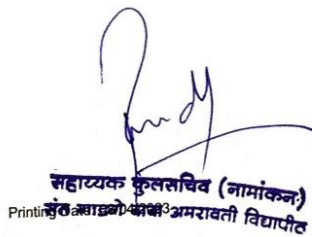 सहाय्यक कुलसचिव (नामांकन)
संत गाडगे बाबा अमरावती विद्यापीठ
Printing